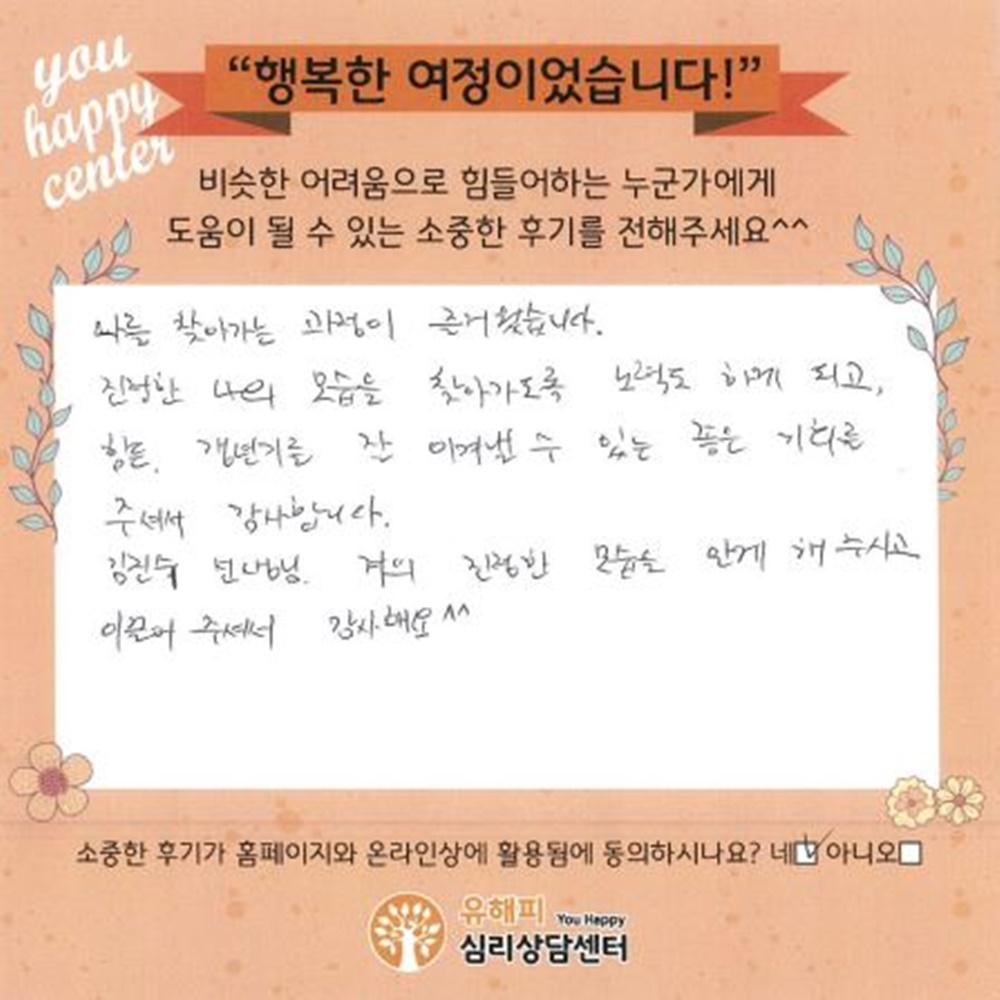 you
happy
center
“행복한 여정이었습니다!”
비슷한 어려움으로 힘들어하는 누군가에게
도움이 될 수 있는 소중한 후기를 전해주세요^^
나를 찾아가는 과정이 즐거웠습니다.
진정한 나의 모습을 찾아가도록 노력도 하게 되고,
힘든. 갱년기를 잘 이겨낼 수 있는 좋은 기회를
주셔서 감사합니다.
김진숙 저의 진정한 모습을 알게 해 주시고
이끌어 주셔서 감사해요^^
소중한 후기가 홈페이지와 온라인상에 활용됨에 동의하시나요? 네 아니오
유해피 You Happy
심리상담센터